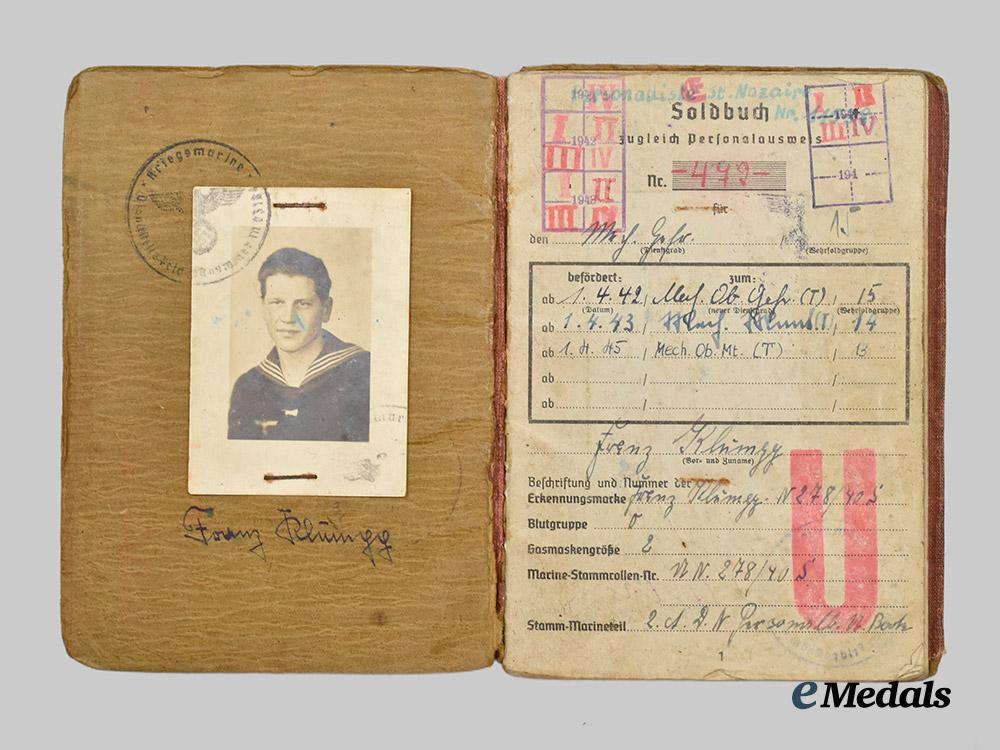 Kriegsmarine
Franz Klumpp
Personalliste St. Nazaire
Soldbuch
Nr.
zugleich Personalausweis
Nr. -499-
für
den Mech. Gefr. 1.-
(Dienstgrad) (Wehrsoldgruppe)
IV
I II 1942
III IV
I II 1943
III IV
I II
1944
III IV
194
befördert: zum:
ab 1.4.42 Mech. Ob. Gefr. (T) 15
(Datum) (neuer Dienstgrad) (Wehrsoldgruppe)
ab 1.4.43 Mech. Maat (T) 14
ab 1.4.45 Mech. Ob. Mt. (T) 13
ab
ab
Franz Klumpp
(Vor- und Zuname)
Beschriftung und Nummer der
Erkennungsmarke Franz Klumpp. N 278/40 S
Blutgruppe O
Gasmaskengröße 2
Marine-Stammrollen-Nr. N. 278/40 S
Stamm-Marineteil 2. A. D. N
U
1
eMedals